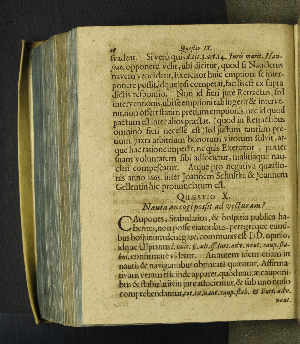 Quæstio IX.
suadeat. Si vero quis d. tit. 3. ad 14. Juris marit. Han-
seat. opponere velit, ubi dicitur, quod si Nauclerus
navem vendiderit, Exercitor huic emptioni se inter-
ponere possit, id quod ipsi competat, facilis est ex supra
dictis responsio. Non id fieri jure Retractus, sed
interventionis, ubi se emptioni tali ingerit & interve-
nit, non offert statim pretium emptionis, nec id quod
pactum est inter alios præstat, quod in Retractibus
omnino fieri necesse est; sed justum tantum pre-
tium, juxta arbitrium bonorum virorum solvit, at-
que hac ratione impedit, ne quis Exercitor, præter
suam voluntatem sibi associetur, malitiæque nau-
cleri compescatur. Atque pro negativa quæstio-
nis anno 1665. inter Joannem Schuste & Joannem
Gellentin hic pronunciatum est.
QUÆSTIO X.
Nauta an cogi possit ad vecturam?
CAupones, Stabularios, & hospitia publica ha-
bentes, non posse viatoribus, peregreque eunti-
bus hospitium denegare, communis est DD. opinio,
idque Ulpianus
confirmare videtur. An autem idem etiam in
nautis & navigantibus obtineat, quæritur. Affirma-
tivam veram esse inde apparet, quod nautæ, cauponi-
bus & stabulariis in pare adocientur, & sub uno titulo
comprehendantur, tot. tit. naut. caup. stab. & Furt. adv.
naut.